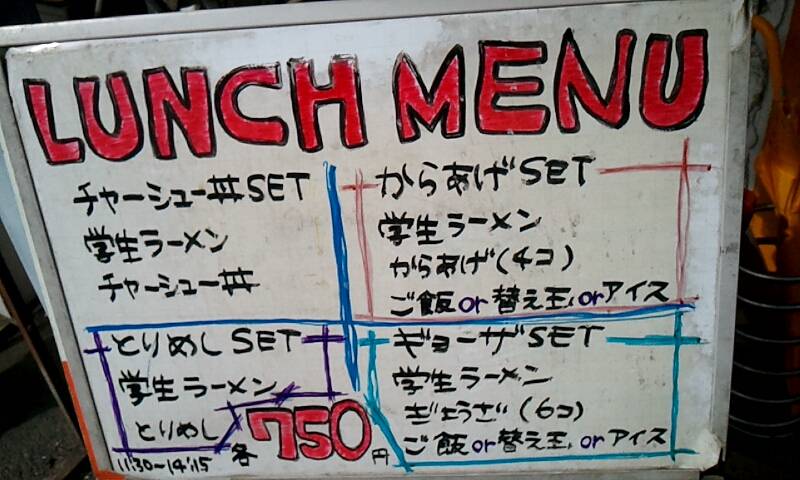 LUNCH MENU
チャーシュー丼SET
学生ラーメン
チャーシュー丼
からあげSET
学生ラーメン
からあげ(4コ)
ご飯or替え玉orアイス
とりめしSET
学生ラーメン
とりめし
ギョーザSET
学生ラーメン
ぎょうざ(6コ)
ご飯or替え玉orアイス
11:30~14:15
各750円